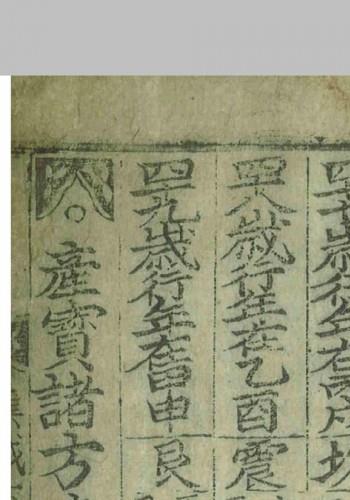 四十七歲行年在丙戌坎
四十八歲行年在乙酉震
四十九歲行年在甲申艮
産寶諸方